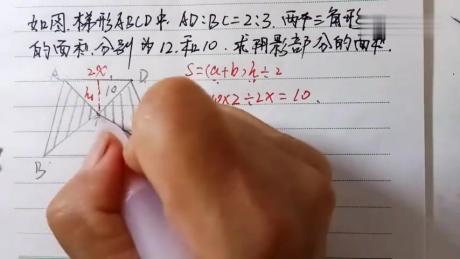 如图.梯形ABCD中. AD:BC=2:3. 两个三角形
的面积分别为12.和10. 求阴影部分的面积.
2x
S=(a+b)h÷2
A
D
h₁
10
×2÷2x=10
B